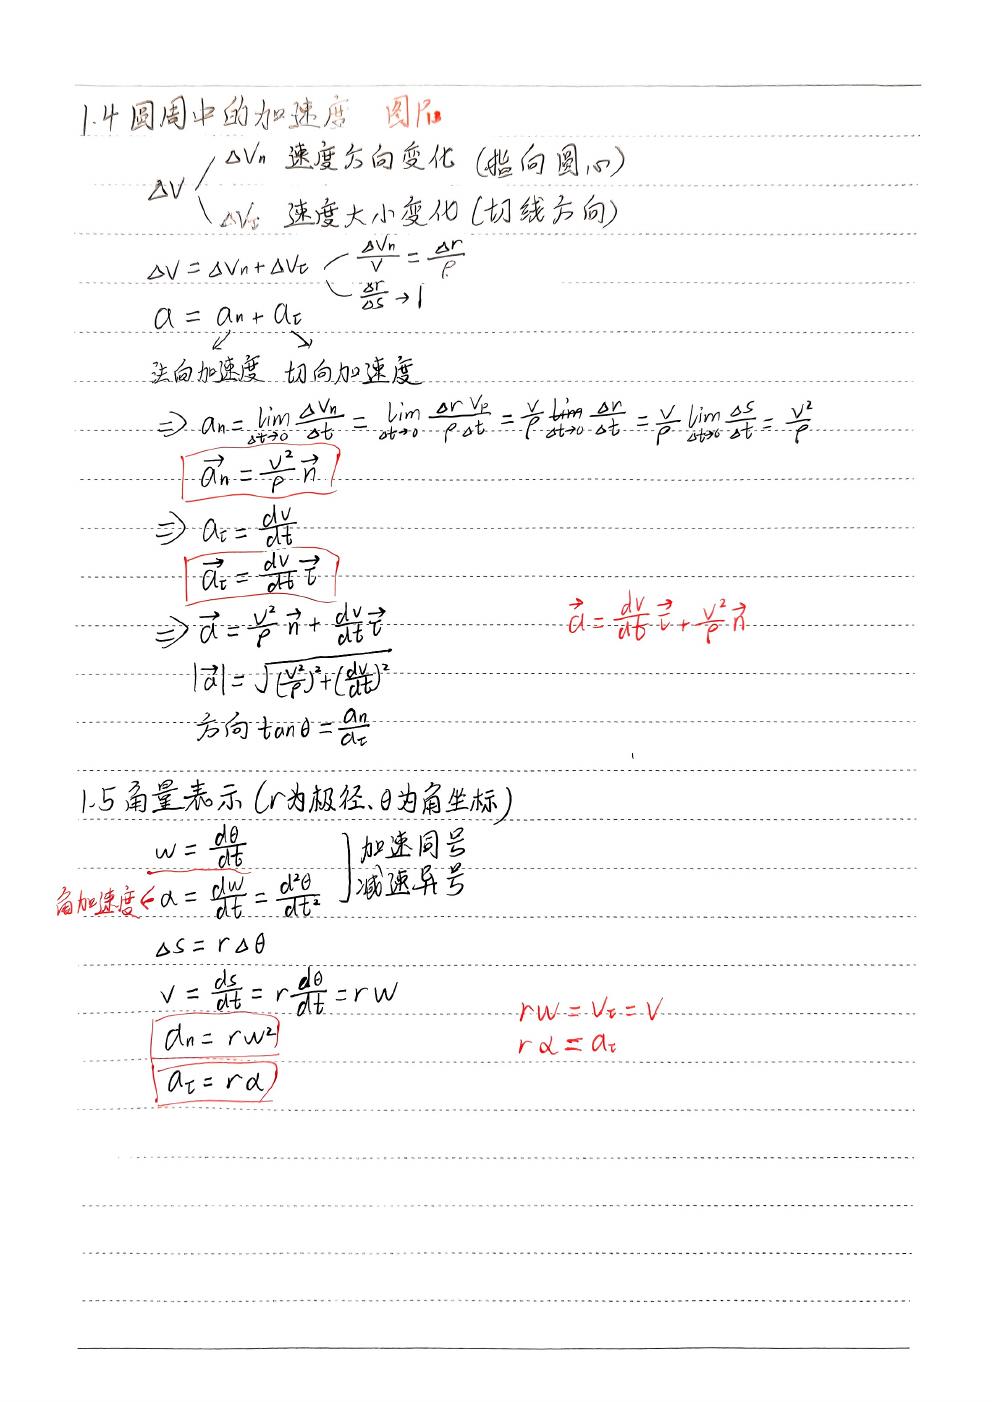 1.4 圆周中的加速度 图P₁₁
ΔVn 速度方向变化 (指向圆心)
ΔV
ΔVτ 速度大小变化 (切线方向)
ΔV = ΔVn + ΔVτ ΔVn/V = Δr/ρ
Δr/Δs → 1
a = an + aτ
法向加速度 切向加速度
⇒ an = lim(Δt→0) ΔVn/Δt = lim(Δt→0) Δr Vρ/ρΔt = V/ρ lim(Δt→0) Δr/Δt = V/ρ lim(Δt→0) Δs/Δt = V²/ρ
a⃗n = V²/ρ n⃗
⇒ aτ = dv/dt
a⃗τ = dv/dt τ⃗
⇒ a⃗ = V²/ρ n⃗ + dv/dt τ⃗ a⃗ = dv/dt τ⃗ + V²/ρ n⃗
|a⃗| = √((V²/ρ)² + (dv/dt)²)
方向 tanθ = an/aτ
1.5 角量表示 (r为极径、θ为角坐标)
w = dθ/dt 加速同号
减速异号
角加速度 ← α = dw/dt = d²θ/dt²
Δs = rΔθ
v = ds/dt = r dθ/dt = rw
rw = Vτ = V
an = rw²
rα = aτ
aτ = rα